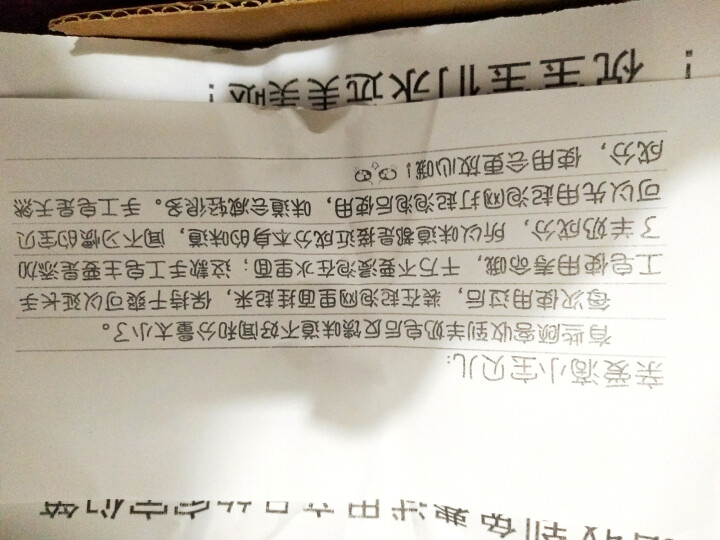 收到免费试用产品的宝宝们
亲爱滴小宝贝儿:
有些顾客收到羊奶皂后反馈味道不好闻和分量太小了。
每次使用过后，装在起泡网里面挂起来，保持干爽可以延长手
工皂使用寿命哦，千万不要浸泡在水里面；这款手工皂主要是添加
了羊奶成分，所以味道都是接近成分本身的味道，闻不习惯的宝贝
可以先用起泡网打起泡泡后使用，味道会减轻很多。手工皂是天然
成分，使用会更放心哦！
！祝宝宝们永远美美哒！